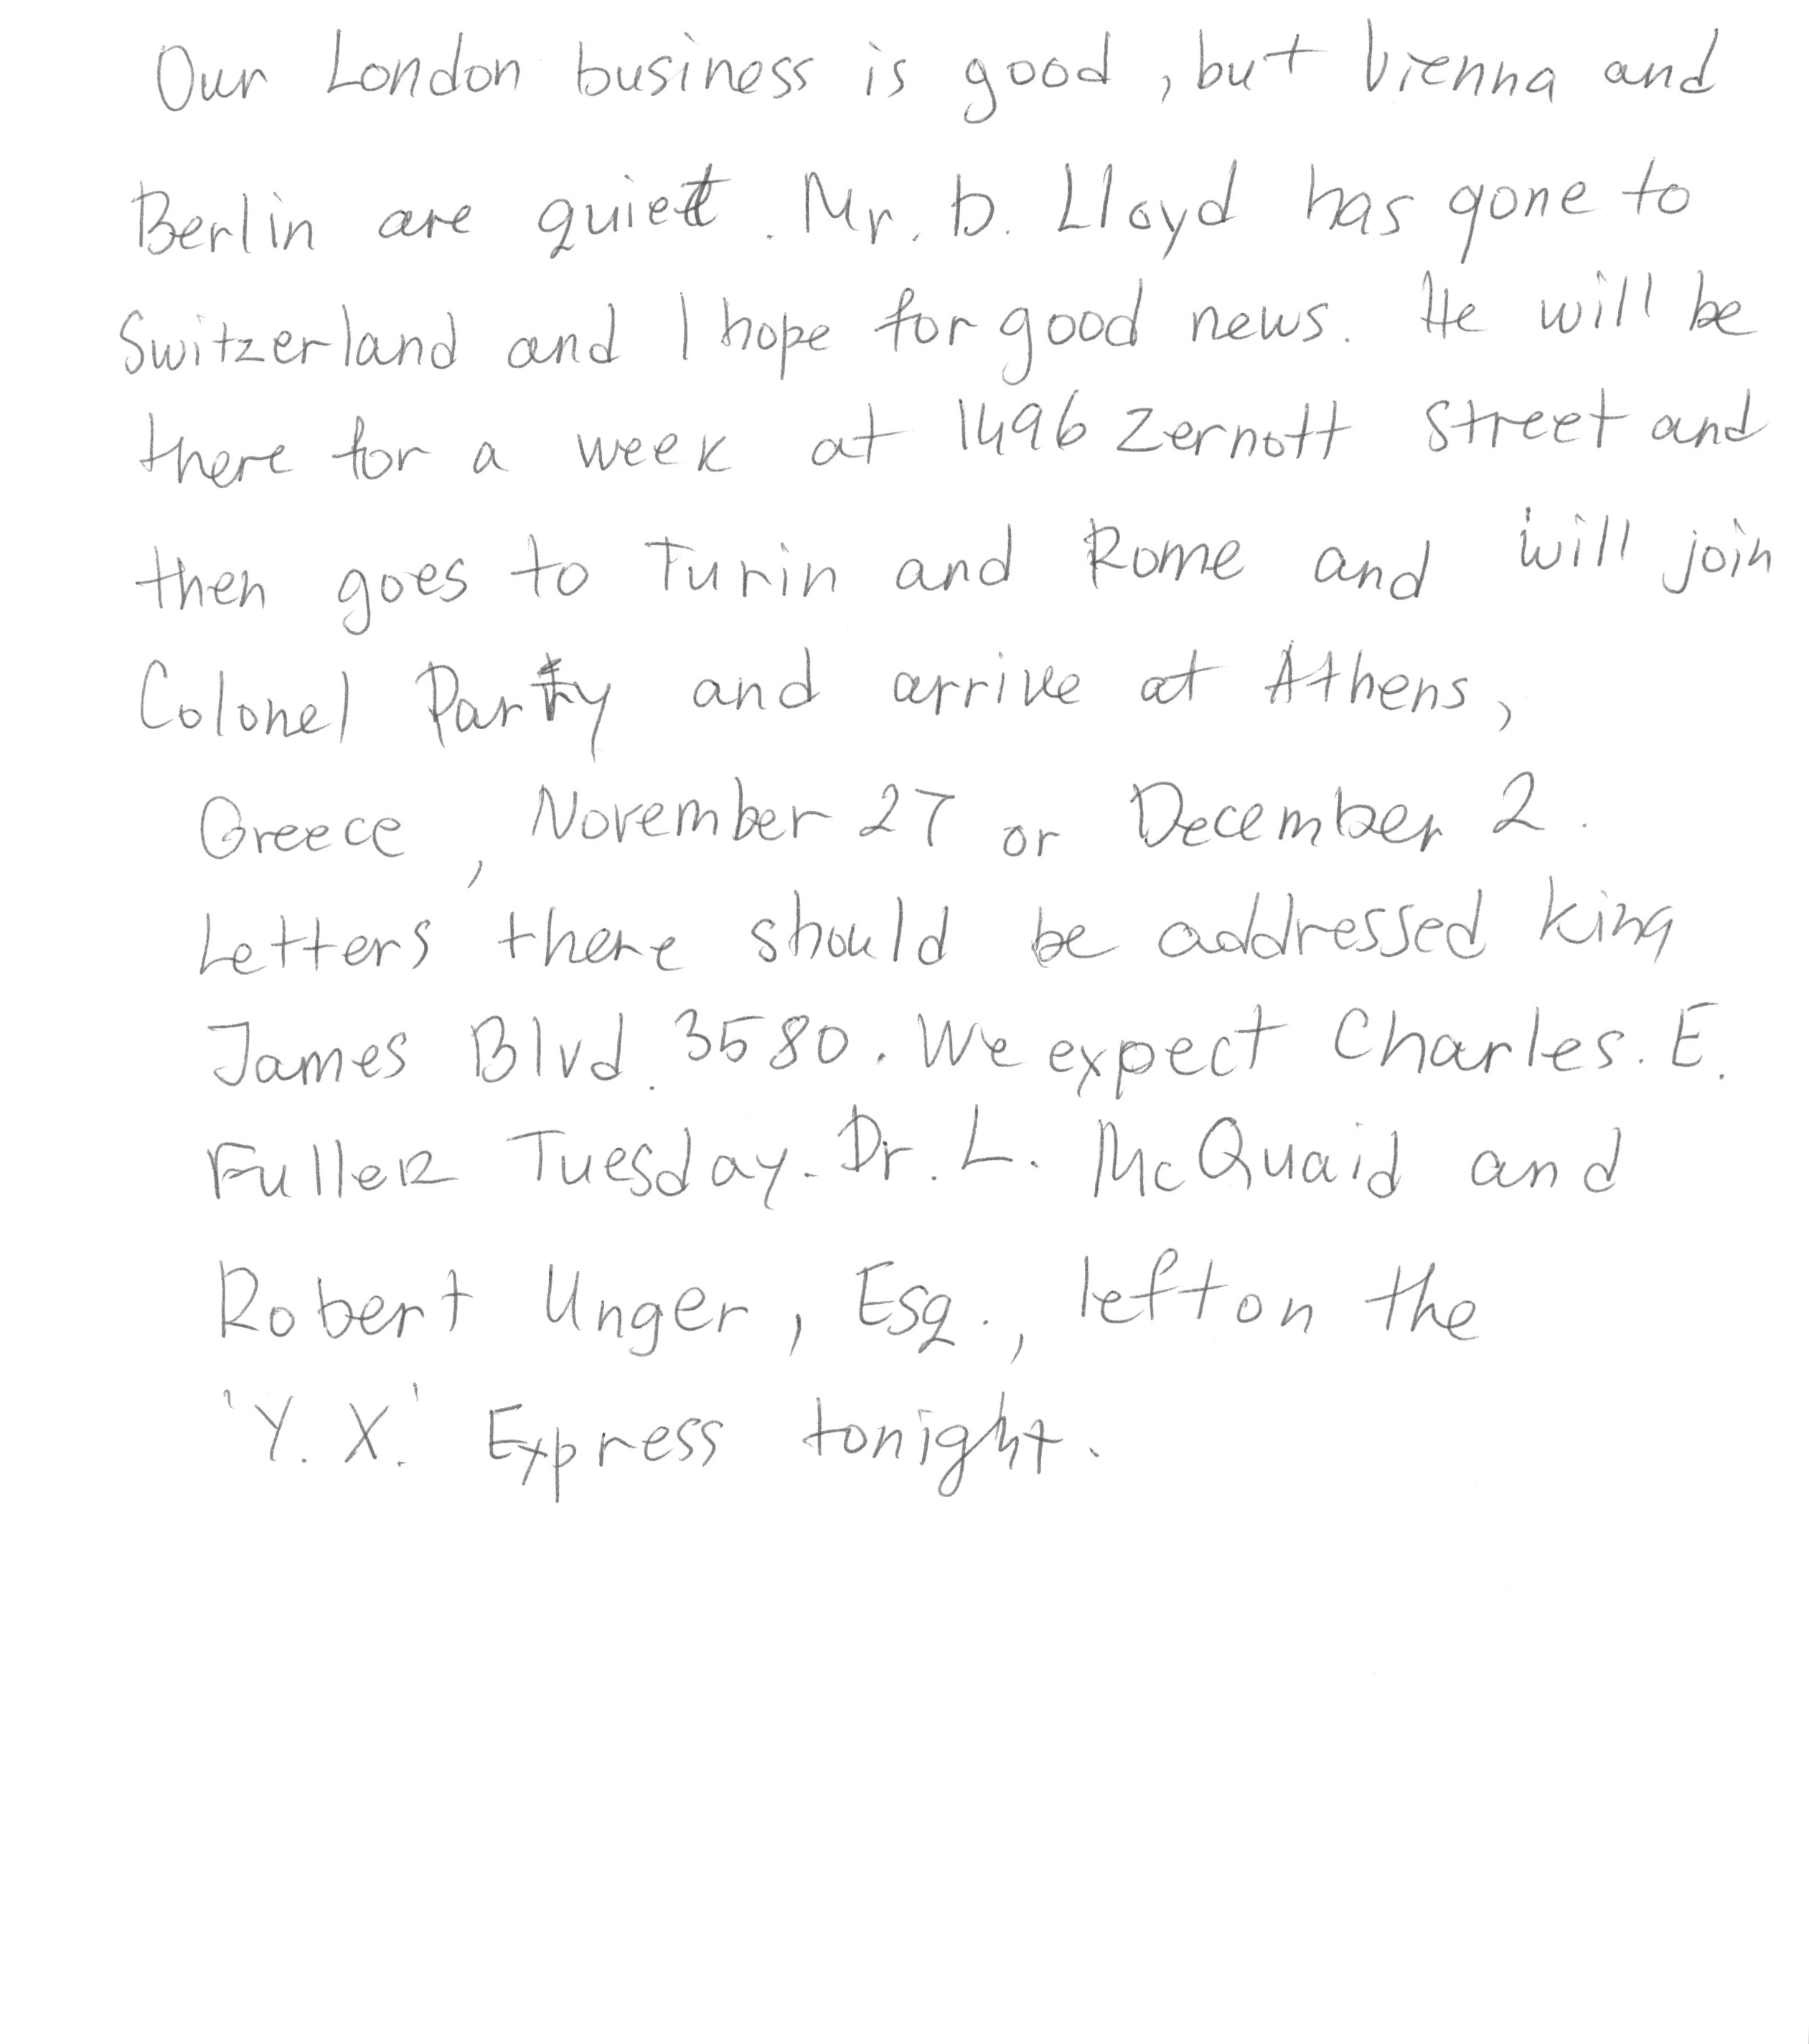 Our London business is good, but Vienna and
Berlin are quiet. Mr. D. Lloyd has gone to
Switzerland and I hope for good news. He will be
there for a week at 1496 Zernott Street and
then goes to Turin and Rome and will join
Colonel Parry and arrive at Athens,
Greece, November 27 or December 2.
Letters there should be addressed King
James Blvd. 3580. We expect Charles. E.
Fuller Tuesday. Dr. L. McQuaid and
Robert Unger, Esq., left on the
'Y. X.' Express tonight.